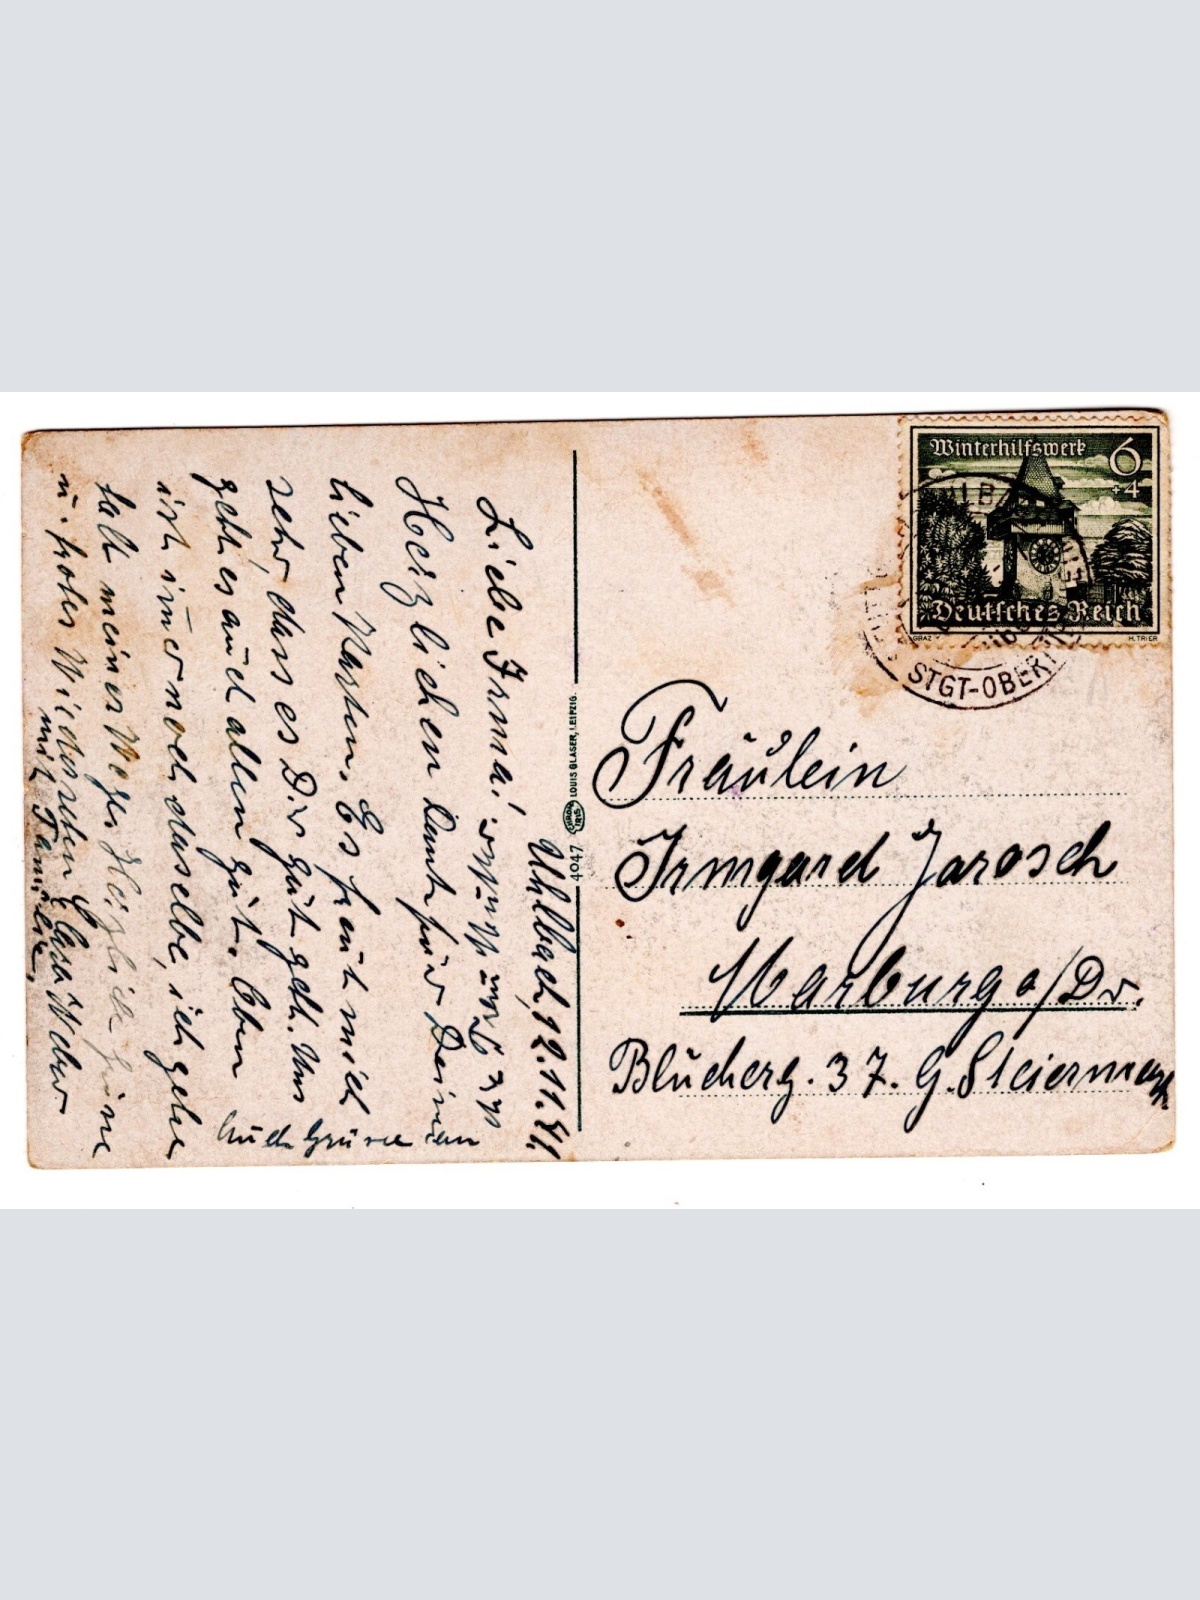 Uhlbach, 12.11.41.
Liebe Irma!
Herzlichen Dank für Deine
lieben Karten. Es freut mich
sehr, dass es Dir gut geht. Uns
geht es auch allen gut. Eben
ist immer noch dasselbe, ich gehe
halt meiner Wege. Herzliche Grüsse
u. frohes Wiedersehen
mit Familie.
Auch Grüsse an
4047
LOUIS GLASER, LEIPZIG.
Winterhilfswerk 6
+4
Deutsches Reich
GRAZ
H. TRIER
STGT-OBERT
Fräulein
Irmgard Jarosch
Marburg a/Dr.
Blücherg. 37. G. Steiermark.